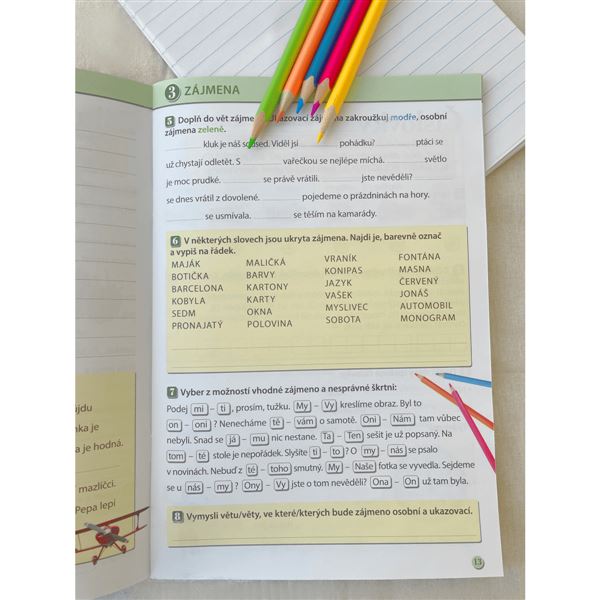 3 ZÁJMENA
5 Doplň do vět zájme ukazovací záj na zakroužkuj modře, osobní
zájmena zeleně.
kluk je náš soused. Viděl jsi pohádku? ptáci se
už chystají odletět. S vařečkou se nejlépe míchá. světlo
je moc prudké. se právě vrátili. jste nevěděli?
se dnes vrátil z dovolené. pojedeme o prázdninách na hory.
se usmívala. se těším na kamarády.
6 V některých slovech jsou ukryta zájmena. Najdi je, barevně označ
a vypiš na řádek.
MAJÁK MALIČKÁ VRANÍK FONTÁNA
BOTIČKA BARVY KONIPAS MASNA
BARCELONA KARTONY JAZYK ČERVENÝ
KOBYLA KARTY VAŠEK JONÁŠ
SEDM OKNA MYSLIVEC AUTOMOBIL
PRONAJATÝ POLOVINA SOBOTA MONOGRAM
7 Vyber z možností vhodné zájmeno a nesprávné škrtni:
Podej mi – ti, prosím, tužku. My – Vy kreslíme obraz. Byl to
on – oni? Nenecháme tě – vám o samotě. Oni – Nám tam vůbec
nebyli. Snad se já – mu nic nestane. Ta – Ten sešit je už popsaný. Na
tom – té stole je nepořádek. Slyšíte ti – to? O my – nás se psalo
v novinách. Nebuď z té – toho smutný. My – Naše fotka se vyvedla. Sejdeme
se u nás – my? Ony – Vy jste o tom nevěděli? Ona – On už tam byla.
8 Vymysli větu/věty, ve které/kterých bude zájmeno osobní a ukazovací.
13
ůjdu
nka je
a je hodná.
mazlíčci.
Pepa lepí